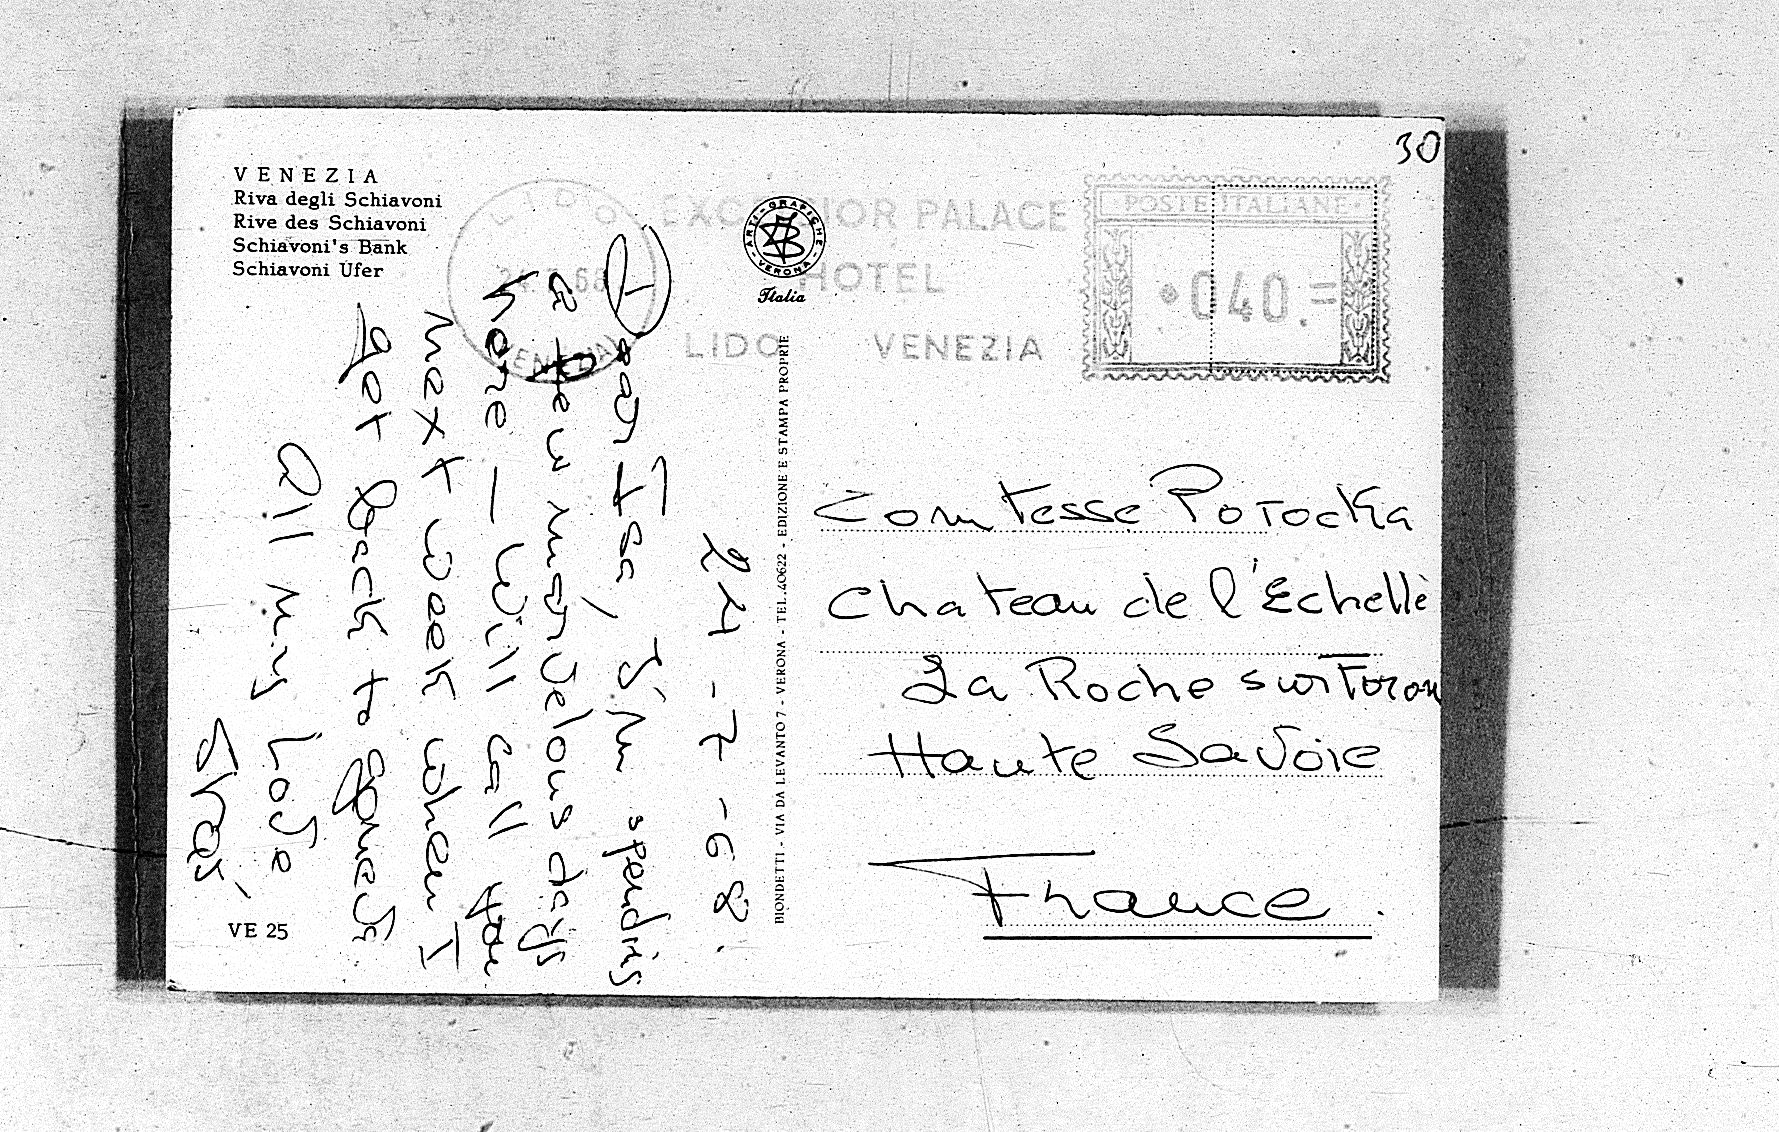 30
VENEZIA
Riva degli Schiavoni
Rive des Schiavoni
Schiavoni's Bank
Schiavoni Ufer
LIDO
VENEZIA
EXCELSIOR PALACE
HOTEL
LIDO VENEZIA
ARTI-GRAFICHE-VERONA
Italia
POSTE ITALIANE
040
24-7-68.
Dear Isa, I'm spending
a few marvelous days
here — Will call you
next week when I
get back to Geneva
All my Love
BIONDETTI - VIA DA LEVANTO 7 - VERONA - TEL. 40622 - EDIZIONE E STAMPA PROPRIE
Comtesse Potocka
Chateau de l'Echelle
La Roche sur Foron
Haute Savoie
France.
VE 25